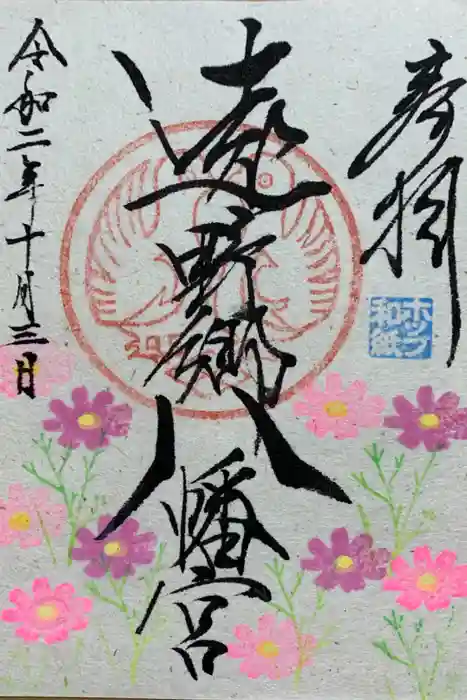 奉拝
ホップ和紙
遠野郷八幡宮
令和二年十月三日